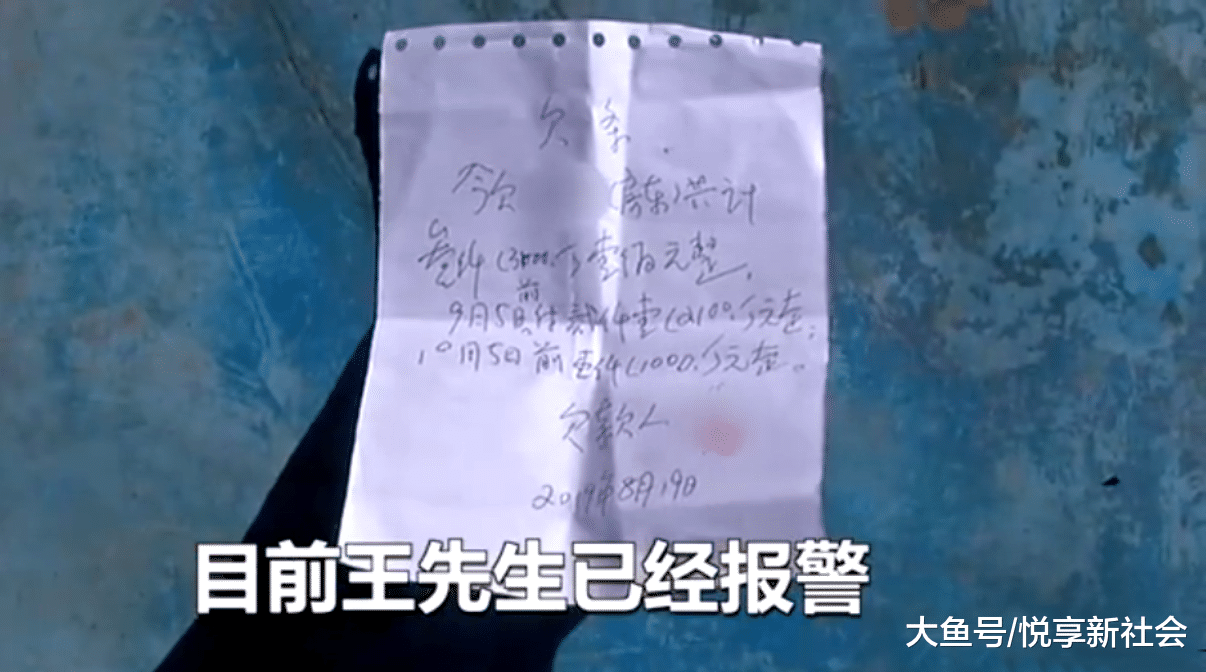 欠条.
今欠 (房东)共计
叁仟(3100.)壹佰元整.
前
9月5日 仟壹(2100.)元整;
10月5日前壹仟(1000.)元整。
欠款人
2019年8月19日
目前王先生已经报警
大鱼号/悦享新社会